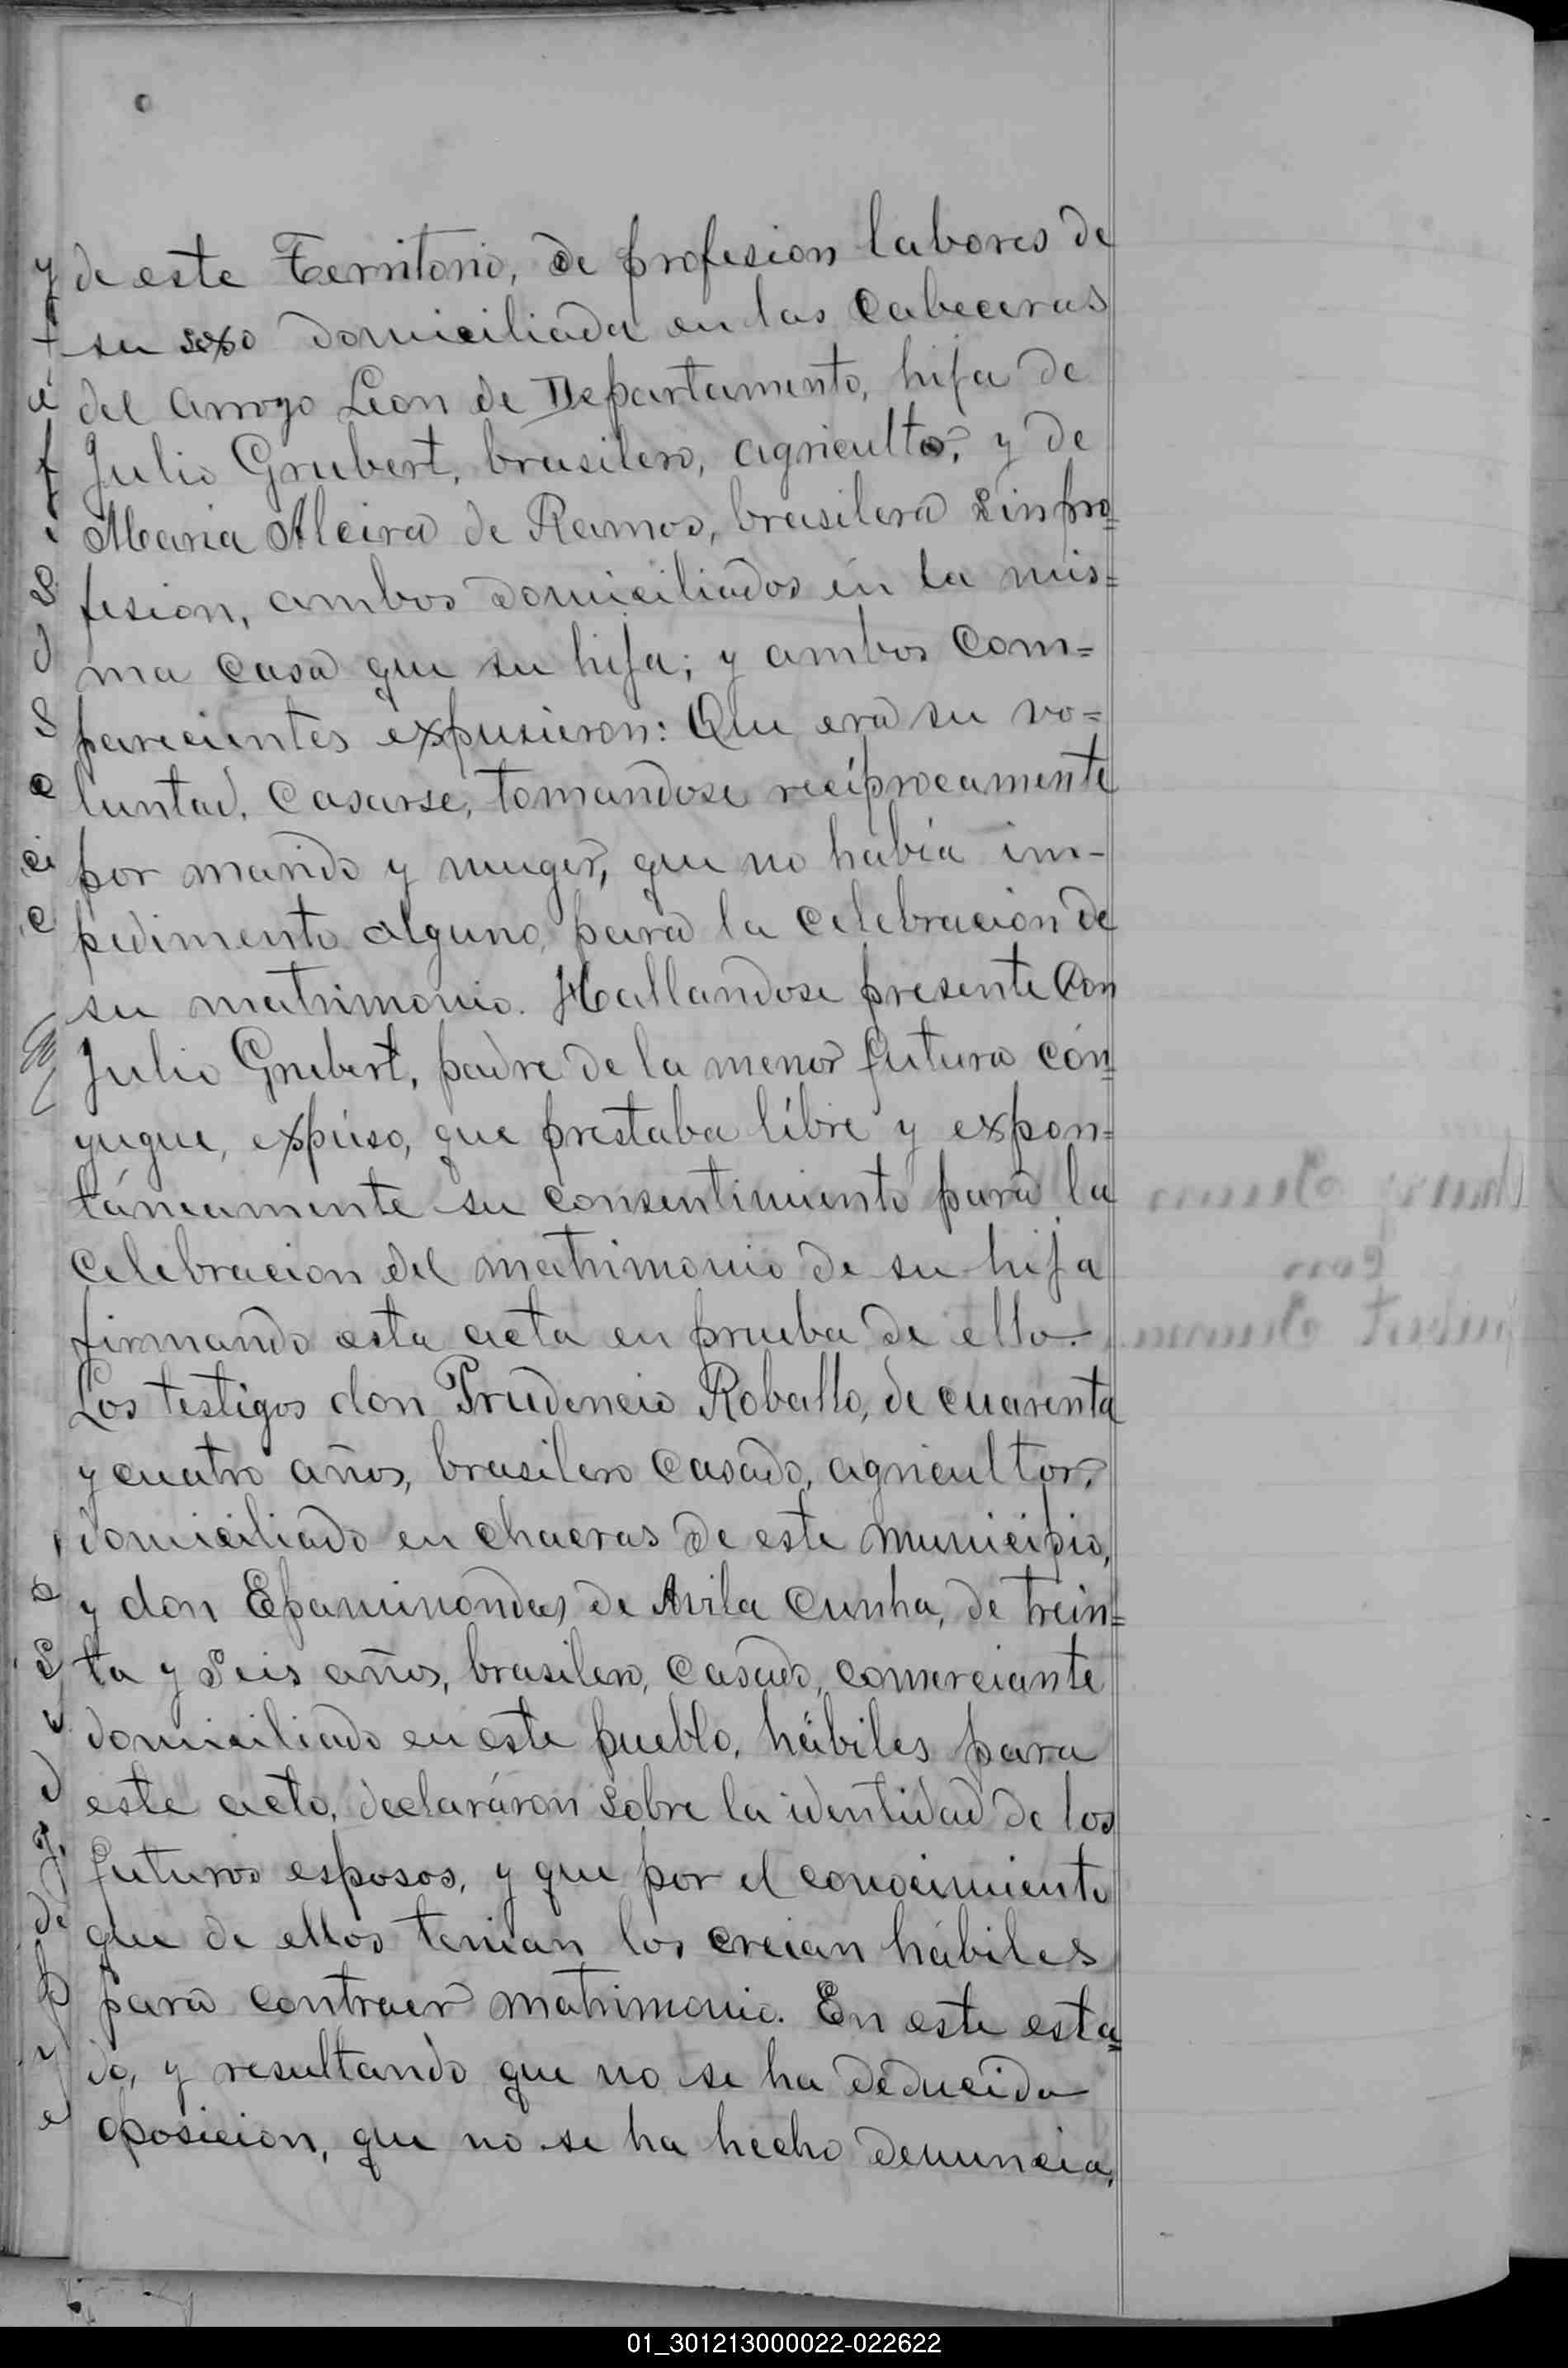 de este Territorio, de profesion labores de
su sexo domiciliada en las cabeceras
del arroyo Leon de Departamento, hija de
Julio Grubert, brasilero, agricultor, y de
Maria Alcira de Ramos, brasilera sin pro=
fesion, ambos domiciliados en la mis=
ma casa que su hija; y ambos com=
parecientes expusieron: Que era su vo=
luntad, casarse, tomandose recíprocamente
por marido y muger, que no había im-
pedimento alguno, para la celebracion de
su matrimonio. Hallandose presente Don
Julio Grubert, padre de la menor futura cón=
yugue, expúso, que prestaba líbre y expon=
táneamente su consentimiento para la
celebracion del matrimonio de su hija
firmando esta acta en prueba de ello.
Los testigos don Prudencio Roballo, de cuarenta
y cuatro años, brasilero casado, agricultor,
domiciliado en chacras de este municipio,
y don Epaminondas de Avila Cunha, de trein=
ta y seis años, brasilero, casado, comerciante
domiciliado en este pueblo, hábiles para
este acto, declaráron sobre la identidad de los
futuros esposos, y que por el conocimiento
que de ellos tenian los creian hábiles
para contraer matrimonio. En este esta=
do, y resultando que no se ha deducido
oposicion, que no se ha hecho denuncia,
01_301213000022-022622